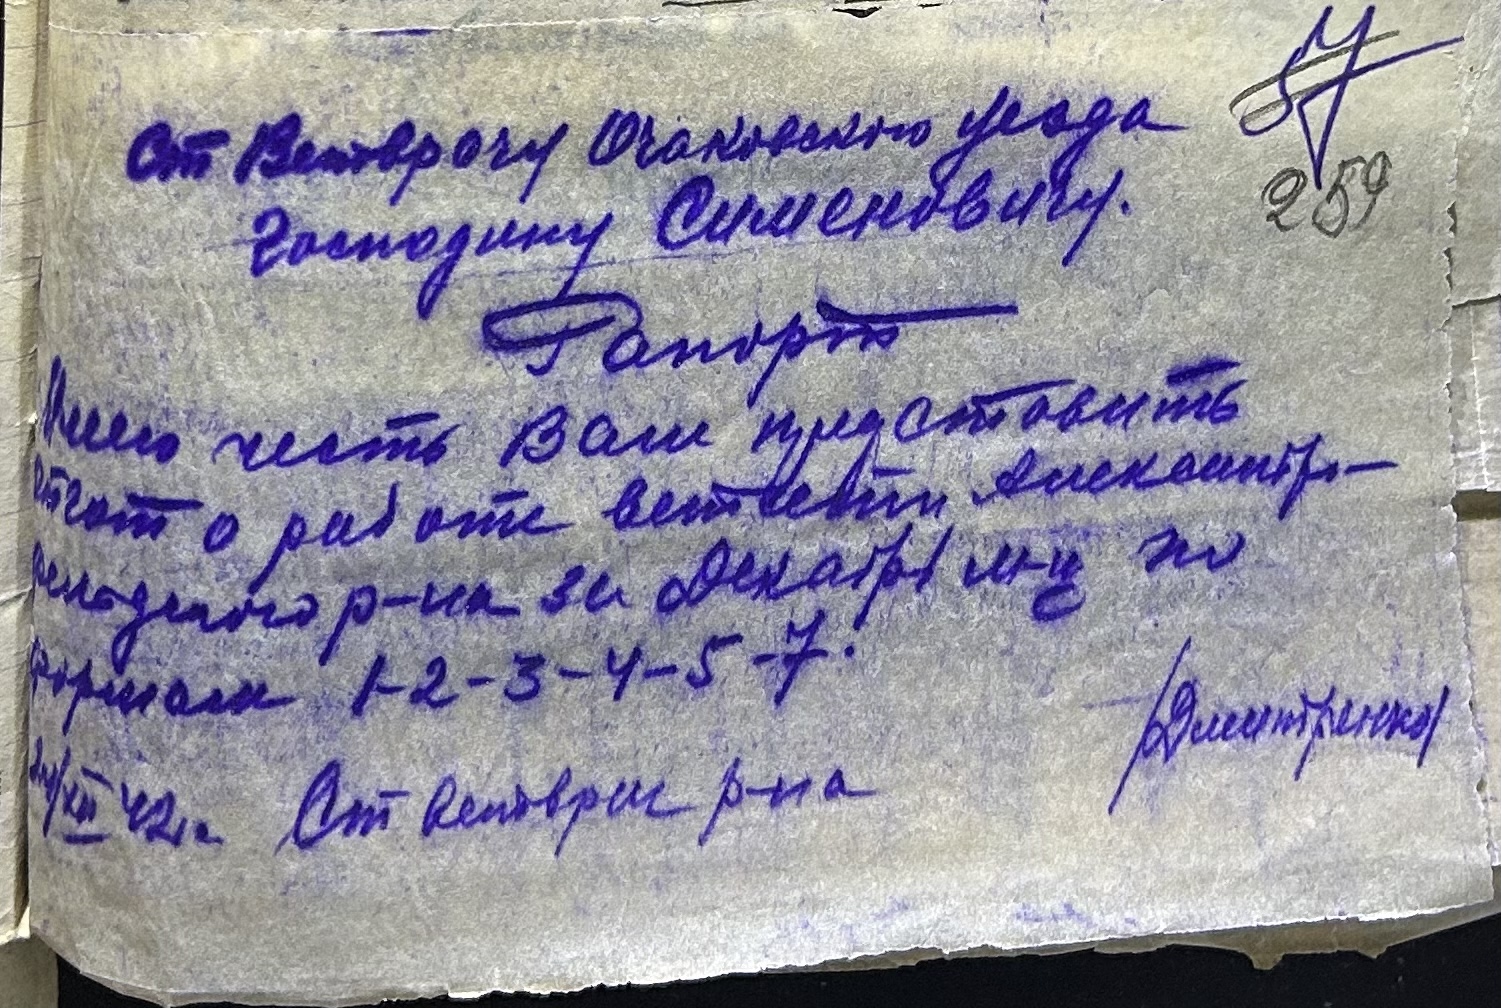 259
Ст Ветврачу Очаковского уезда
Господину Сименовичу.
Рапорт
Имею честь Вам представить
отчот о работе ветсети Александр-
фельдского р-на за Декабрь м-ц по
формам 1-2-3-4-5-7.
/Дмитренко/
24/XII 42г. Ст ветврач р-на